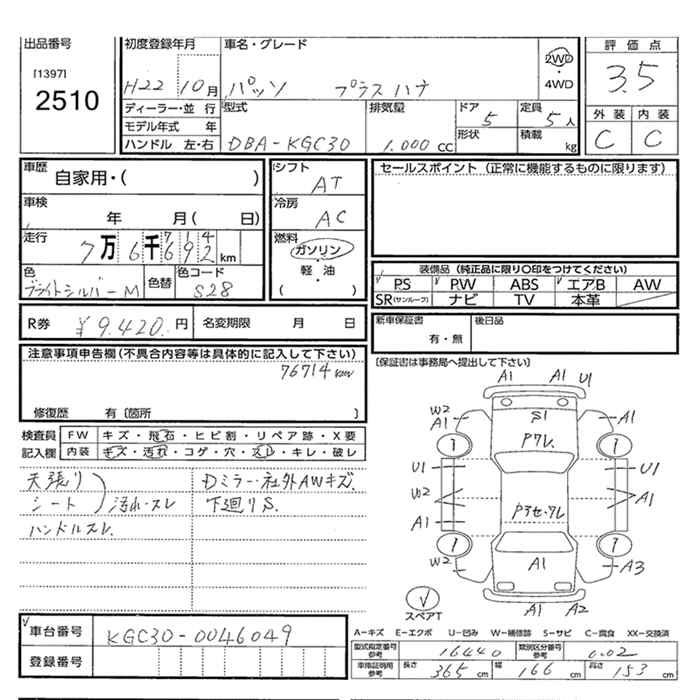 出品番号
[1397]
2510
初度登録年月
H22 10月
車名・グレード
パッソ プラスハナ
2WD
・
4WD
評価点
3.5
外装 内装
C C
ディーラー・並行
モデル年式 年
ハンドル 左・右
型式
DBA-KGC30
排気量
1.000 CC
ドア
5
形状
定員
5人
積載
kg
車歴
自家用・( )
車検
年 月( 日)
走行
7万6千692km
7 1 4
色
ブライトシルバーM
色替
色コード
S28
シフト
AT
冷房
AC
燃料
ガソリン
・
軽・油
( )
セールスポイント (正常に機能するものに限ります)
装備品 (純正品に限り〇印をつけてください)
PS PW ABS エアB AW
SR(サンルーフ) ナビ TV 本革
R券 ¥9.420.円
名変期限 月 日
新車保証書
有・無
後日品
[保証書は事務局へ提出して下さい]
注意事項申告欄(不具合内容等は具体的に記入して下さい)
76714km
修復歴 有〔箇所 〕
検査員
記入欄
FW キズ・飛石・ヒビ割・リペア跡・X要
内装 キズ・汚れ・コゲ・穴・スレ・キレ・破レ
天張り
シート 汚れ・スレ
ハンドルスレ.
Dミラー・社外AWキズ.
下廻りS.
A1 A1 U1
W2
A1
S1
A1
Pワレ.
U1 U1
W2
A1
Pラセ・ワレ
A1
W2
A1
A3
A1 A2
スペアT
車台番号 KGC30-0046049
登録番号
A-キズ E-エクボ U-凹み W-補修跡 S-サビ C-腐食 XX-交換済
型式指定番号
参考
16440
類別区分番号
参考
0.02
車庫証明用
参考
長さ 365 cm
幅 166 cm
高さ 153 cm